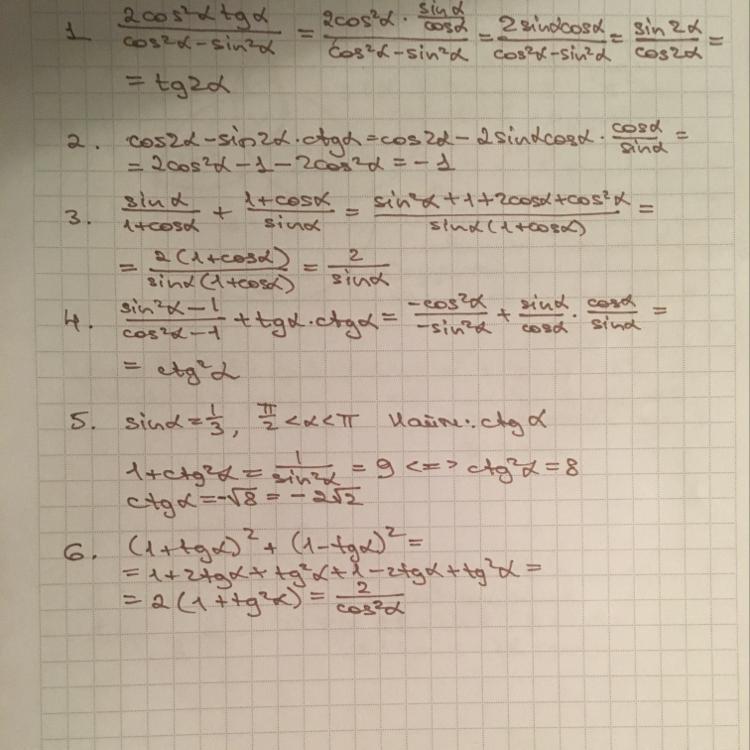 1 (2cos²α tgα)/(cos²α-sin²α) = (2cos²α · sinα/cosα)/(cos²α-sin²α) = (2sinαcosα)/(cos²α-sin²α) = sin2α/cos2α =
= tg2α
2. cos2α-sin2α·ctgα=cos2α-2sinαcosα·cosα/sinα =
= 2cos²α-1-2cos²α=-1
3. sinα/(1+cosα) + (1+cosα)/sinα = (sin²α+1+2cosα+cos²α)/(sinα(1+cosα)) =
= 2(1+cosα)/(sinα(1+cosα)) = 2/sinα
4. (sin²α-1)/(cos²α-1) + tgα·ctgα = (-cos²α)/(-sin²α) + sinα/cosα · cosα/sinα =
= ctg²α
5. sinα=1/3, π/2<α<π Найти: ctgα
1+ctg²α = 1/sin²α = 9 <=> ctg²α=8
ctgα=-√8=-2√2
6. (1+tgα)²+(1-tgα)²=
=1+2tgα+tg²α+1-2tgα+tg²α=
=2(1+tg²α)=2/cos²α